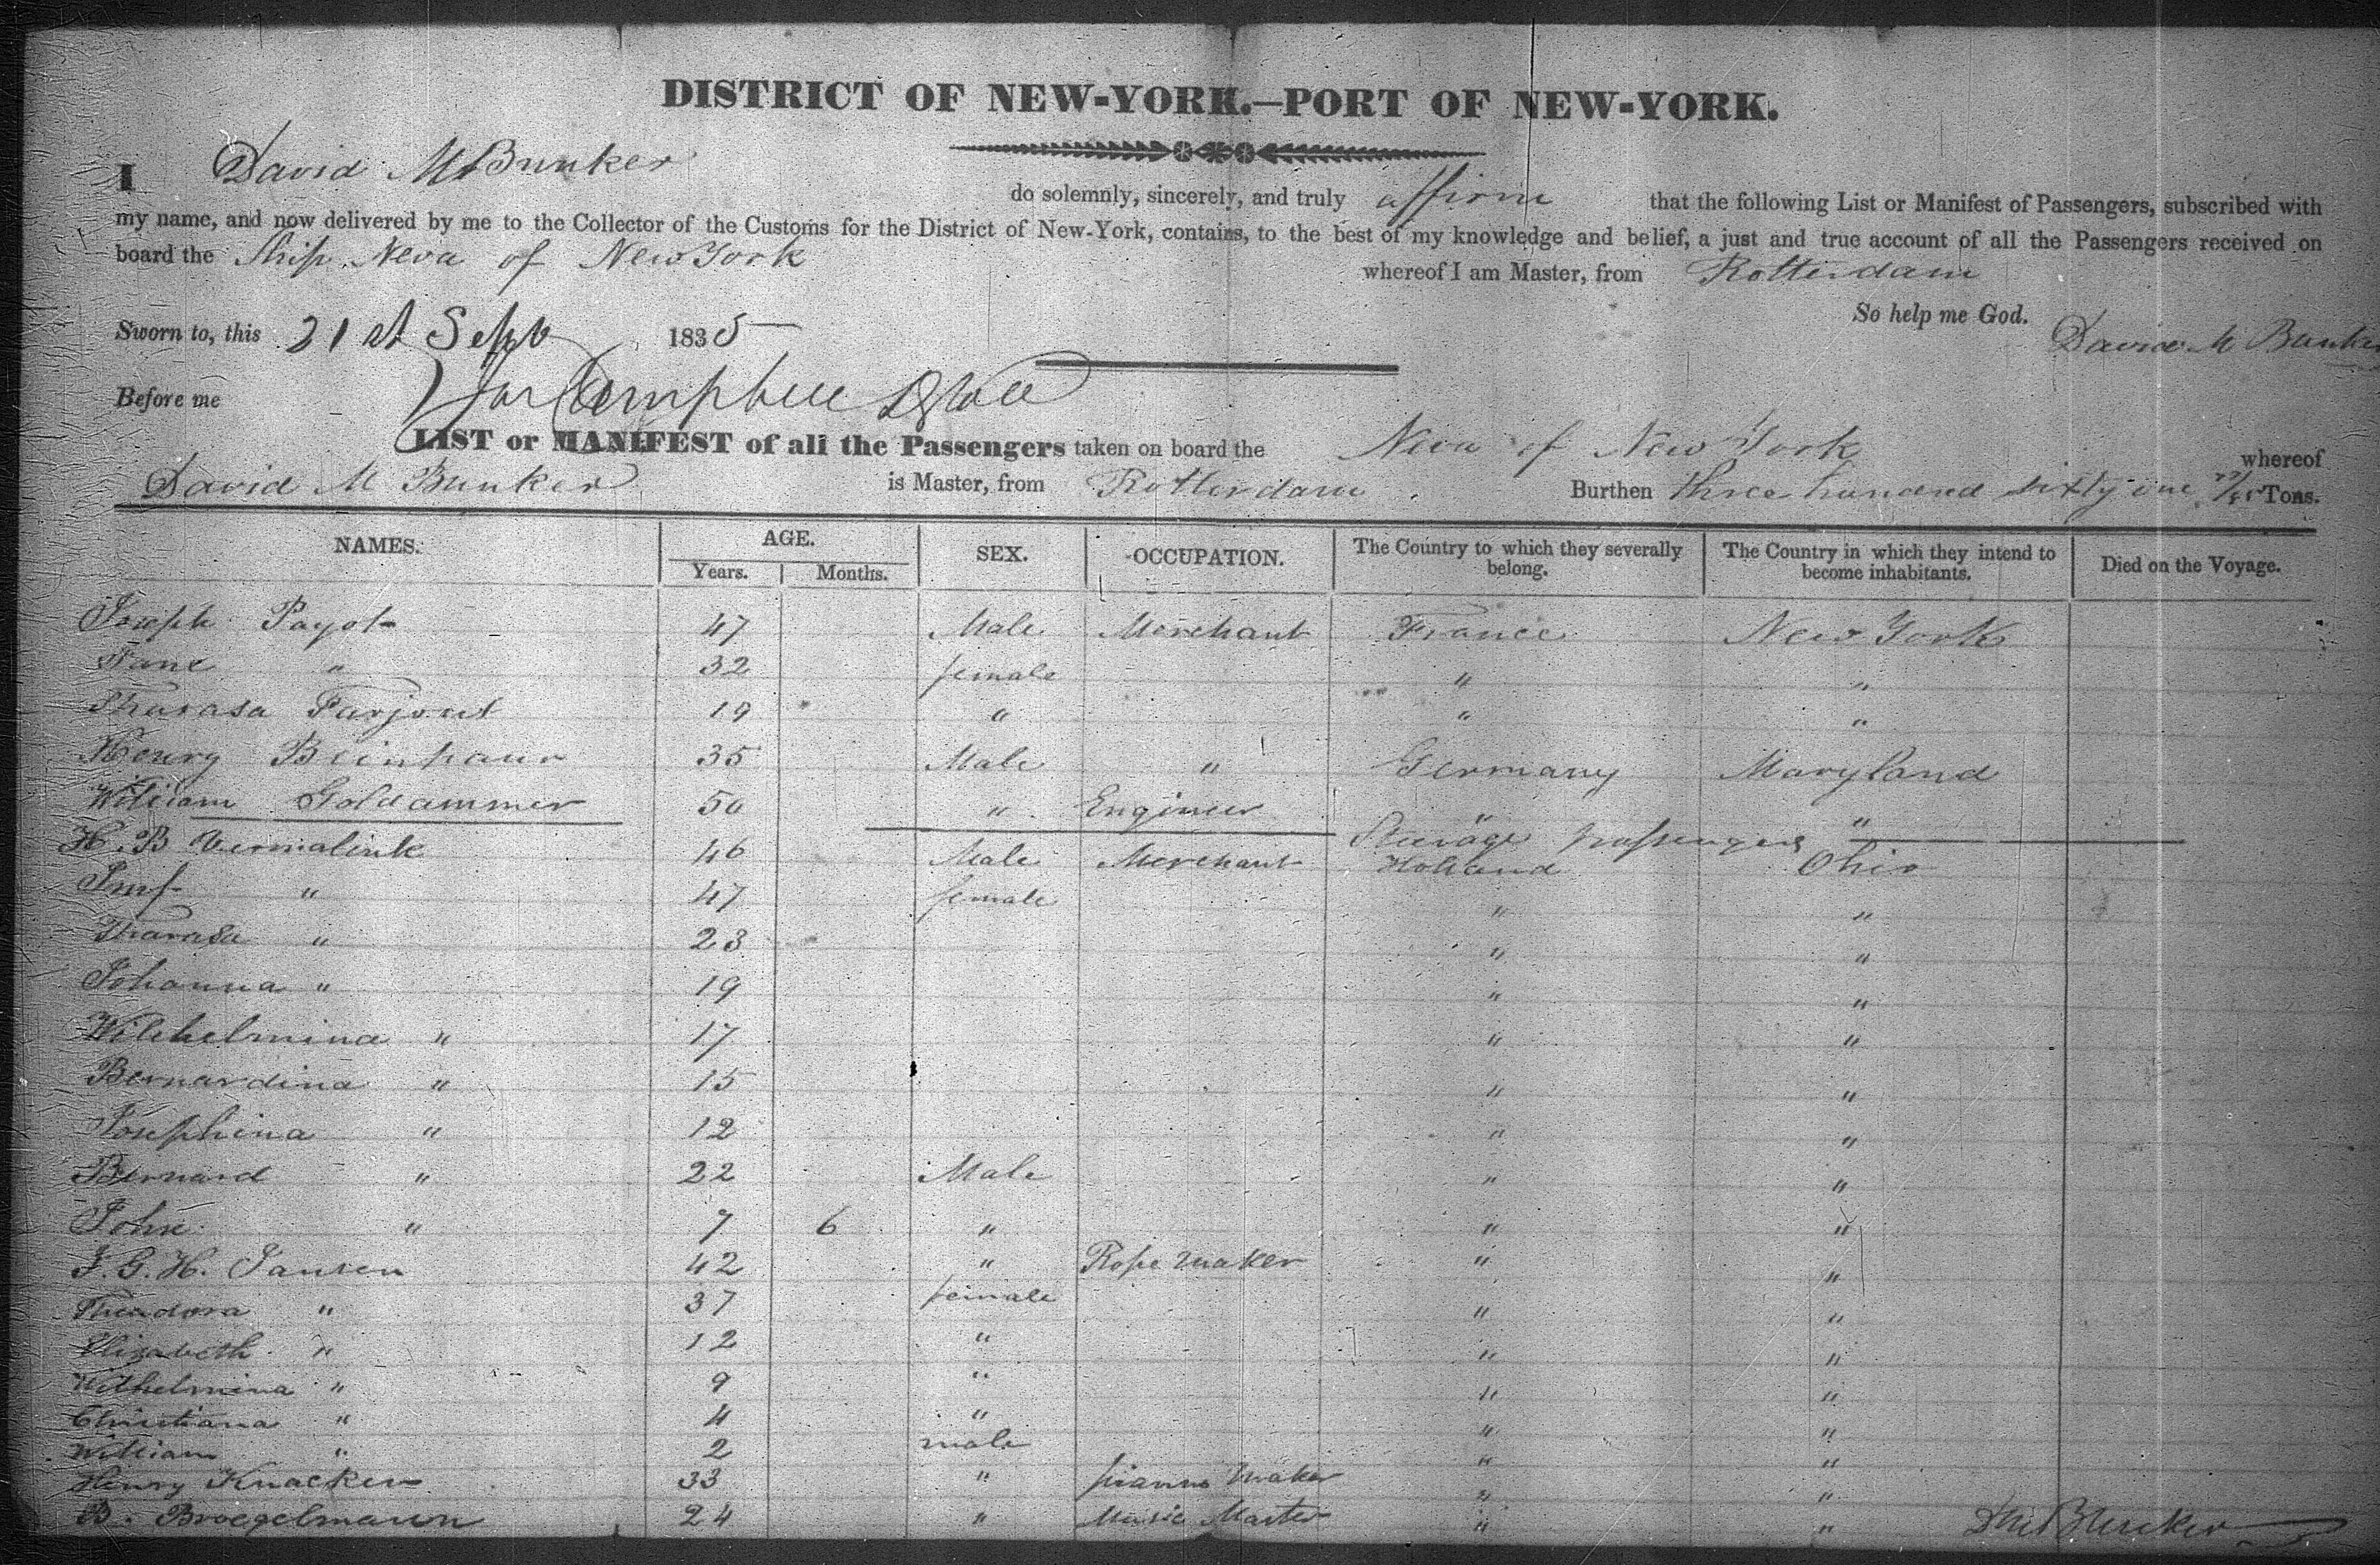 DISTRICT OF NEW-YORK.—PORT OF NEW-YORK.
I David M Bunker do solemnly, sincerely, and truly affirm that the following List or Manifest of Passengers, subscribed with
my name, and now delivered by me to the Collector of the Customs for the District of New-York, contains, to the best of my knowledge and belief, a just and true account of all the Passengers received on
board the Ship Neva of New York whereof I am Master, from Rotterdam
So help me God.
Sworn to, this 21st Sepb 1835 David M Bunker
Before me Campbell
LIST or MANIFEST of all the Passengers taken on board the Neva of New York whereof
David M Bunker is Master, from Rotterdam. Burthen three hundred sixty one Tons.
NAMES. AGE. SEX. OCCUPATION. The Country to which they severally belong. The Country in which they intend to become inhabitants. Died on the Voyage.
Years. Months.
Joseph Payot 47 Male Merchant France New York
Jane " 32 female " "
19 " " "
Henry Beinhaur 35 Male " Germany Maryland
William Goldammer 50 " Engineer " "
Steerage passengers
H. B Vermalink 46 Male Merchant Holland Ohio
" 47 female " "
" 23 " "
Johanna " 19 " "
Wilhelmina " 17 " "
Bernardina " 15 " "
Josephina " 12 " "
Bernard " 22 Male " "
John " 7 6 " " "
J. G. H. Jansen 42 " Rope maker " "
Theodora " 37 female " "
Elizabeth " 12 " " "
Wilhelmina " 9 " " "
Christiana " 4 " " "
William " 2 male " "
Henry Knacker 33 " pianno maker " "
B. Broegelmann 24 " Music Master " "